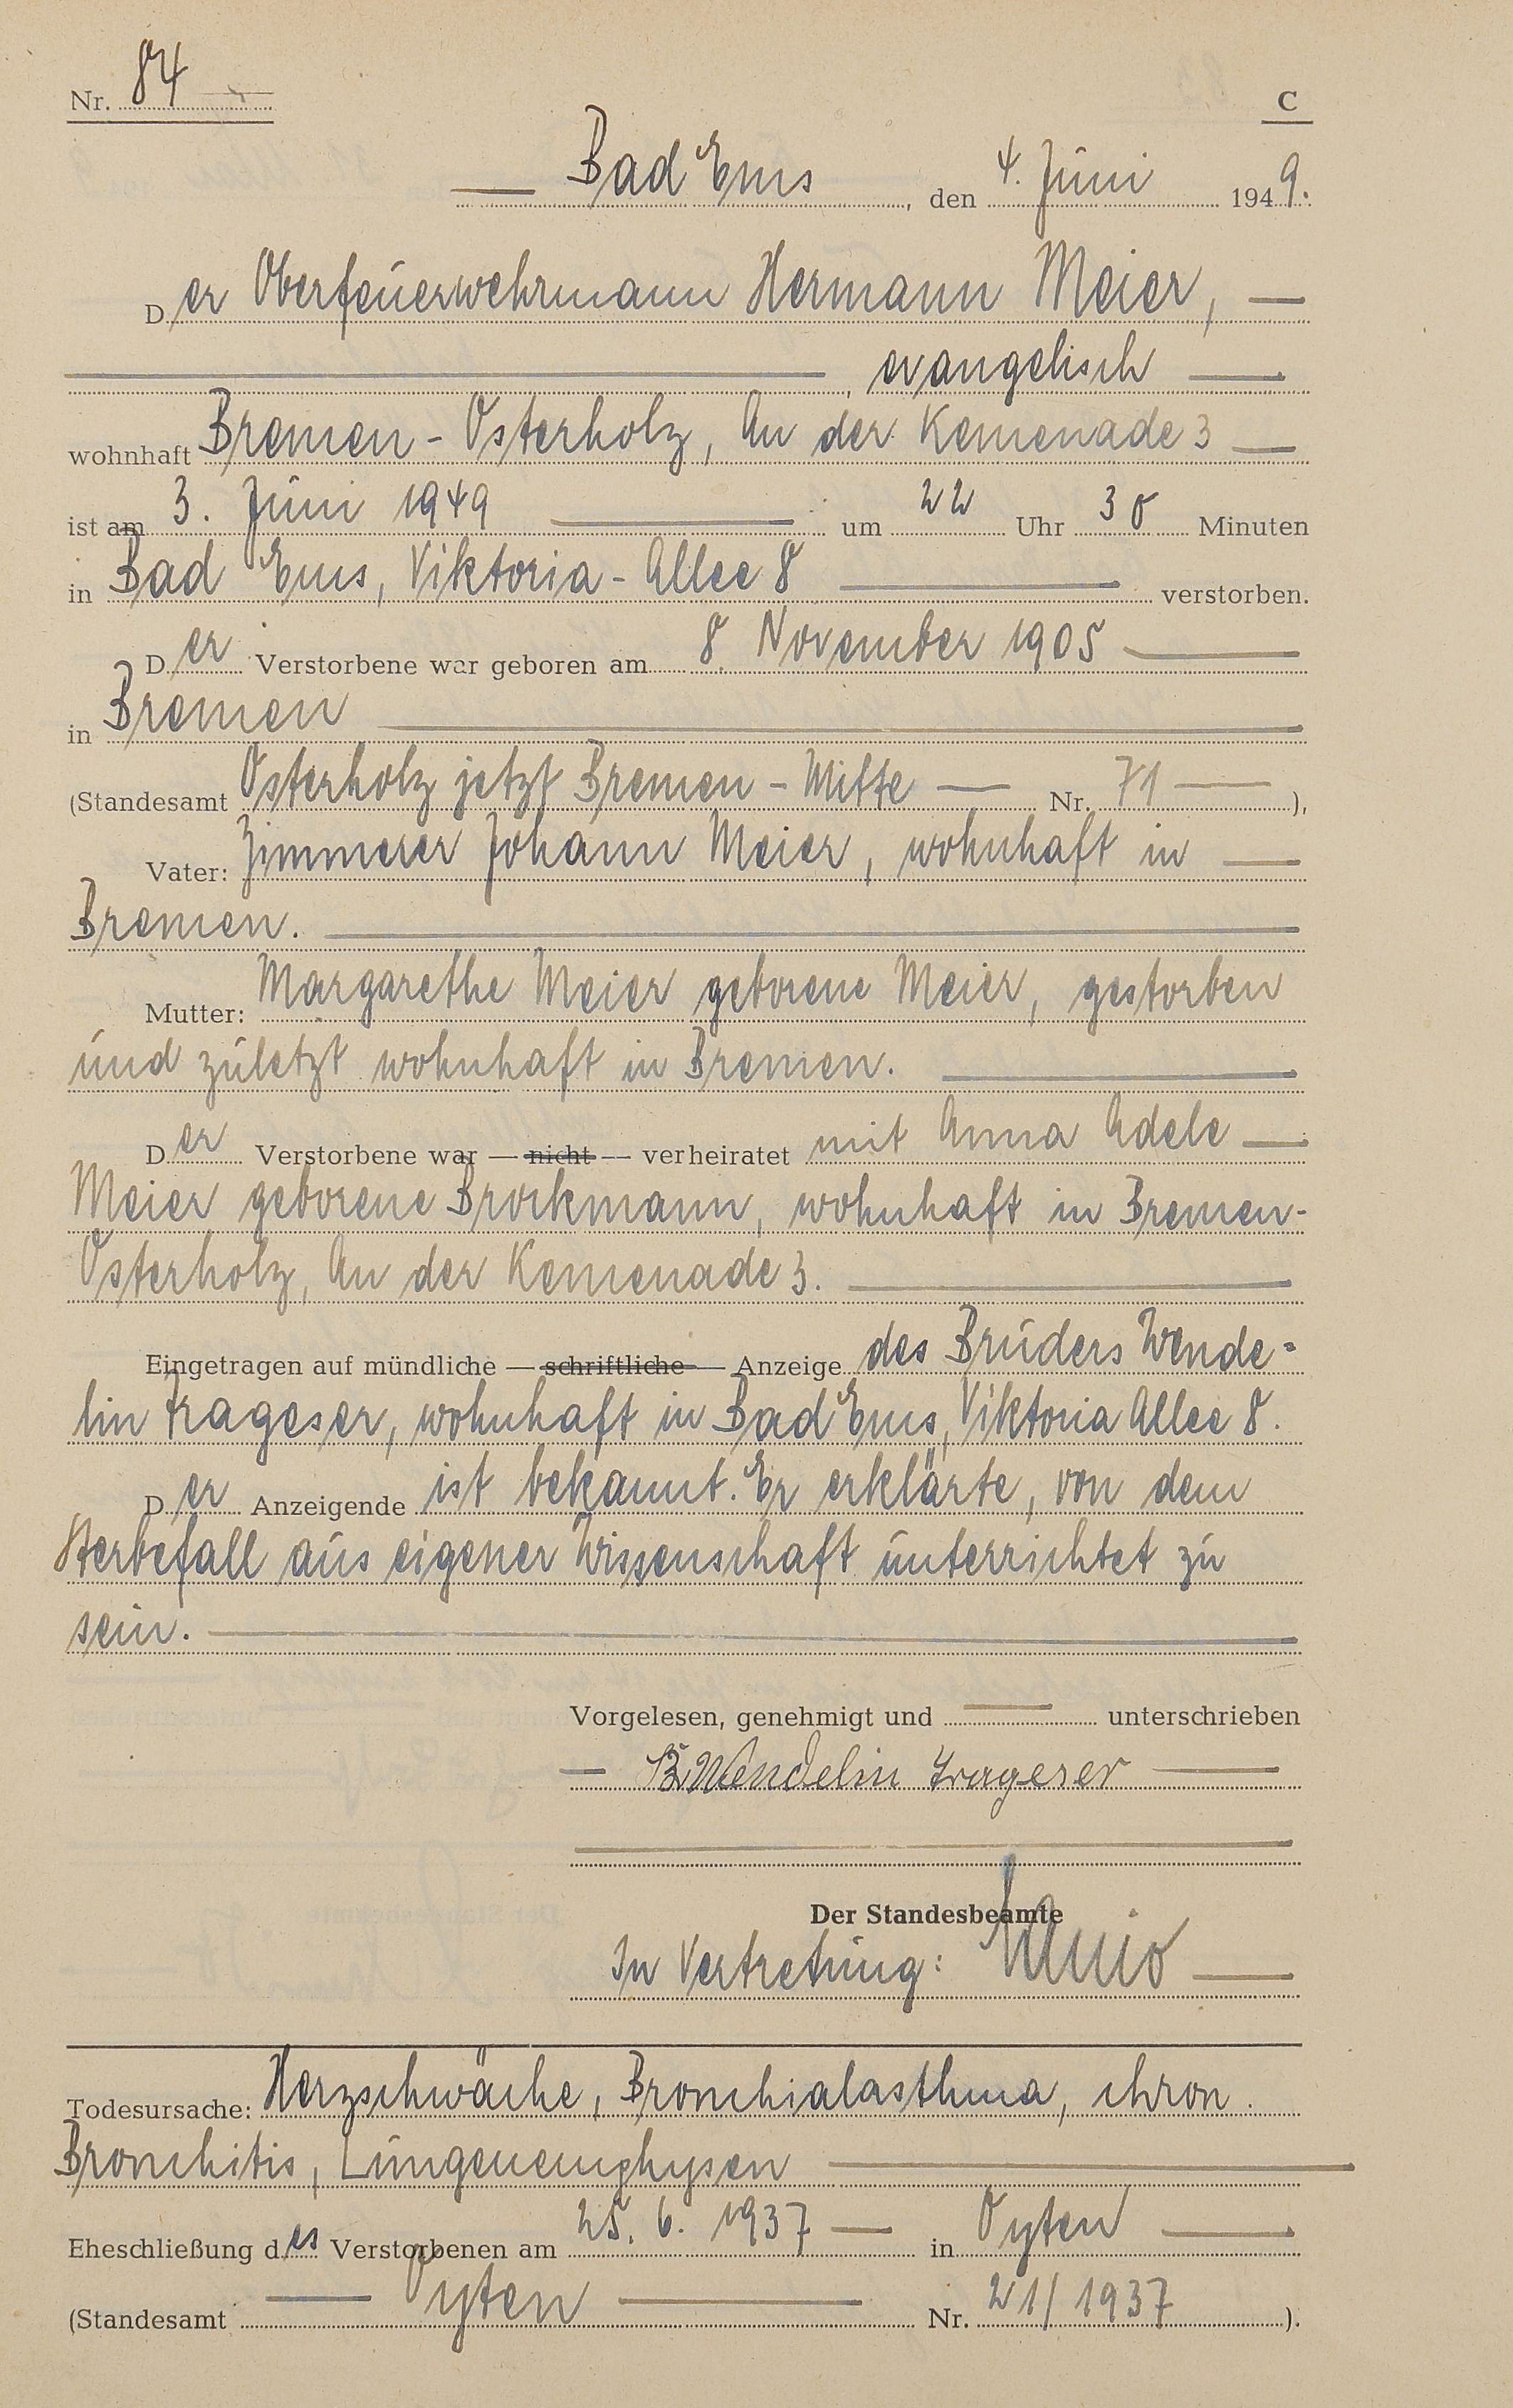 Nr. 84
C
Bad Ems, den 4. Juni 1949.
Der Oberfeuerwehrmann Hermann Meier,
, evangelisch
wohnhaft Bremen-Osterholz, An der Kemenade 3
ist am 3. Juni 1949 um 22 Uhr 30 Minuten
in Bad Ems, Viktoria-Allee 8 verstorben.
Der Verstorbene war geboren am 8. November 1905
in Bremen
(Standesamt Osterholz jetzt Bremen-Mitte Nr. 71 ),
Vater: Zimmerer Johann Meier, wohnhaft in
Bremen.
Mutter: Margarethe Meier geborene Meier, gestorben
und zuletzt wohnhaft in Bremen.
Der Verstorbene war — nicht — verheiratet mit Anna Adele
Meier geborene Brockmann, wohnhaft in Bremen-
Osterholz, An der Kemenade 3.
Eingetragen auf mündliche — schriftliche — Anzeige des Bruders Wende=
lin Trageser, wohnhaft in Bad Ems, Viktoria Allee 8.
Der Anzeigende ist bekannt. Er erklärte, von dem
Sterbefall aus eigener Wissenschaft unterrichtet zu
sein.
Vorgelesen, genehmigt und unterschrieben
Br. Wendelin Trageser
Der Standesbeamte
In Vertretung:
Todesursache: Herzschwäche, Bronchialasthma, chron.
Bronchitis, Lungenemphysen
Eheschließung des Verstorbenen am 25. 6. 1937 in Oyten
(Standesamt Oyten Nr. 21/1937 ).